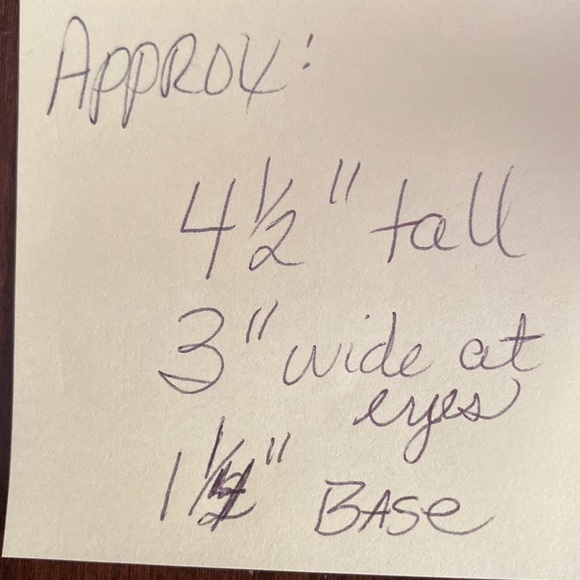 Approx:
4 1/2" tall
3" wide at
eyes
1" Base